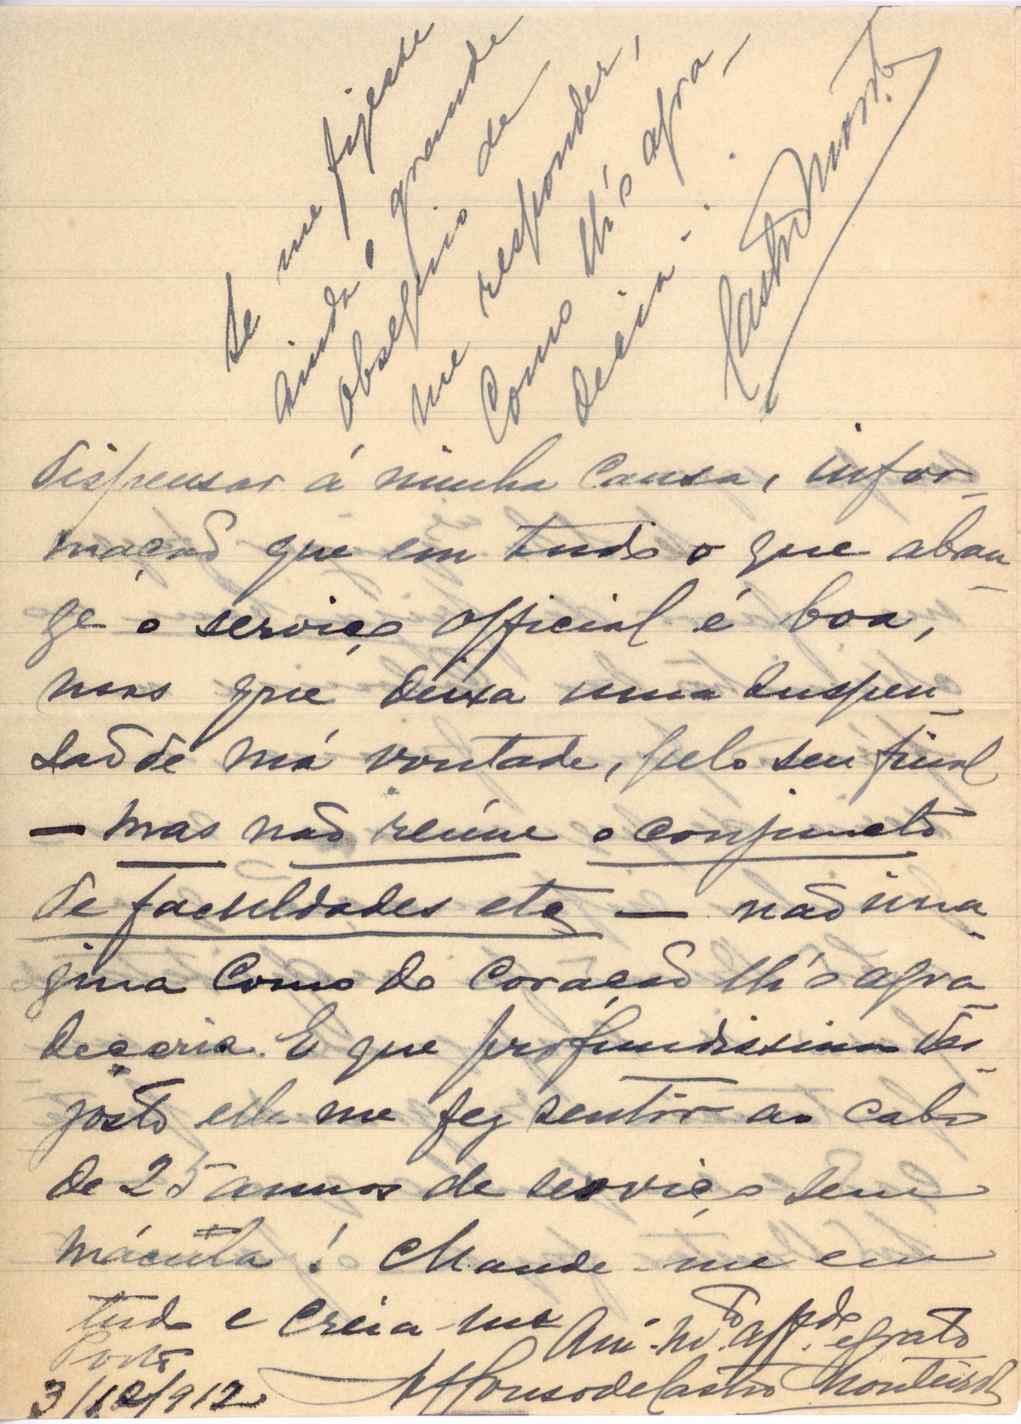 Se me fizesse
ainda o grande
obsequio de
me responder,
como lh'o agra-
decia!
Castro Mont.º
dispensar á minha causa, infor-
mação que em tudo o que abran-
ge o serviço official é boa,
mas que deixa uma suspen-
são de má vontade, pelo seu final
— mas não reúne o conjuncto
de faculdades etc — não ima-
gina como do coração lh'o agra-
deceria. E que profundissimo des-
gosto elle me fez sentir ao cabo
de 25 annos de serviço sem
mácula! Mande-me em
tudo e creia-me
Am.º m.to aff.do e grato
Porto
3/10/912 Affonso de Castro Monteiro